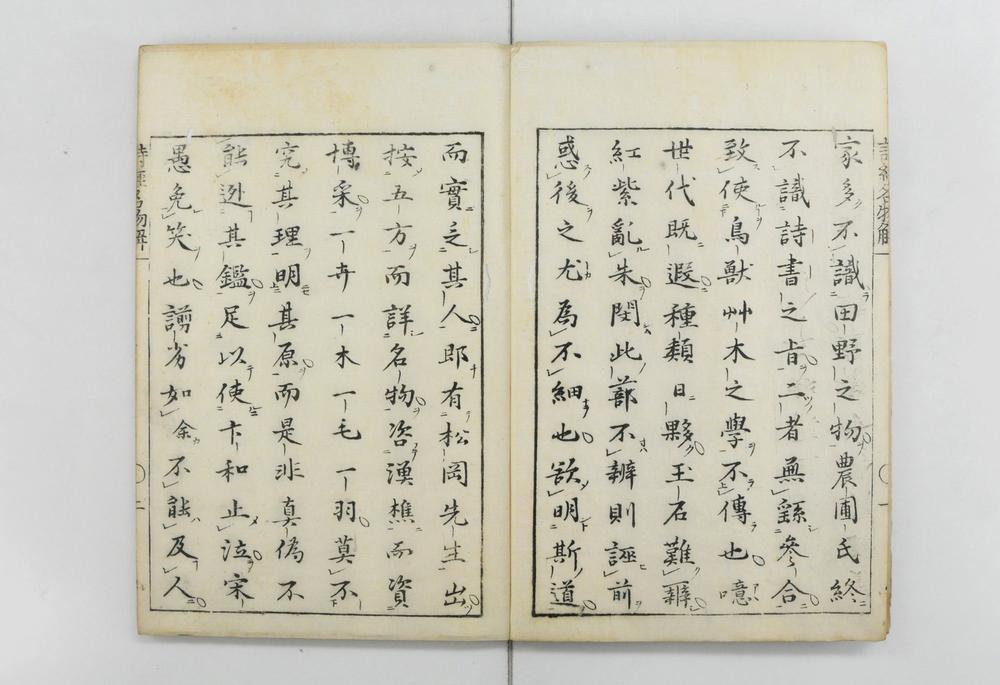 家多不識田野之物農圃氏終
不識詩書之旨二者無繇參合
致使鳥獸艸木之學不傳也噫
世代既遐種類日夥玉石難辨
紅紫亂朱閔此蔀不辨則誣前
惑後之尤為不細也欲明斯道
而實乏其人郎有松岡先生出
按五方而詳名物咨漁樵而資
博采一卉一木一毛一羽莫不
究其理明其原而是非真偽不
能逃其鑑足以使卞和止泣宋
愚免笑也謭劣如余不能及人
詩經名物解
一
詩經名物解
二